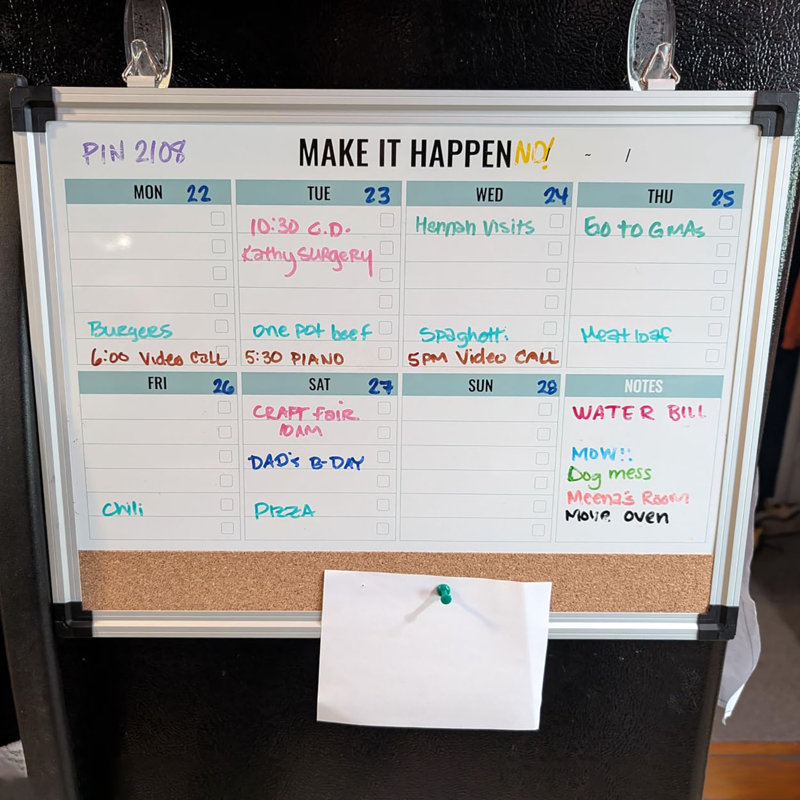 PIN 2108
MAKE IT HAPPEN NO! ~ /
MON 22
Burgers
6:00 Video Call
TUE 23
10:30 C.D.
Kathy SURGERY
one pot beef
5:30 PIANO
WED 24
Hennah Visits
Spaghetti
5PM Video CALL
THU 25
Go to GMAs
Meatloaf
FRI 26
Chili
SAT 27
CRAFT FAIR
10AM
DAD's B-DAY
PIZZA
SUN 28
NOTES
WATER BILL
MOW!!
Dog mess
Meena's Room
Move oven